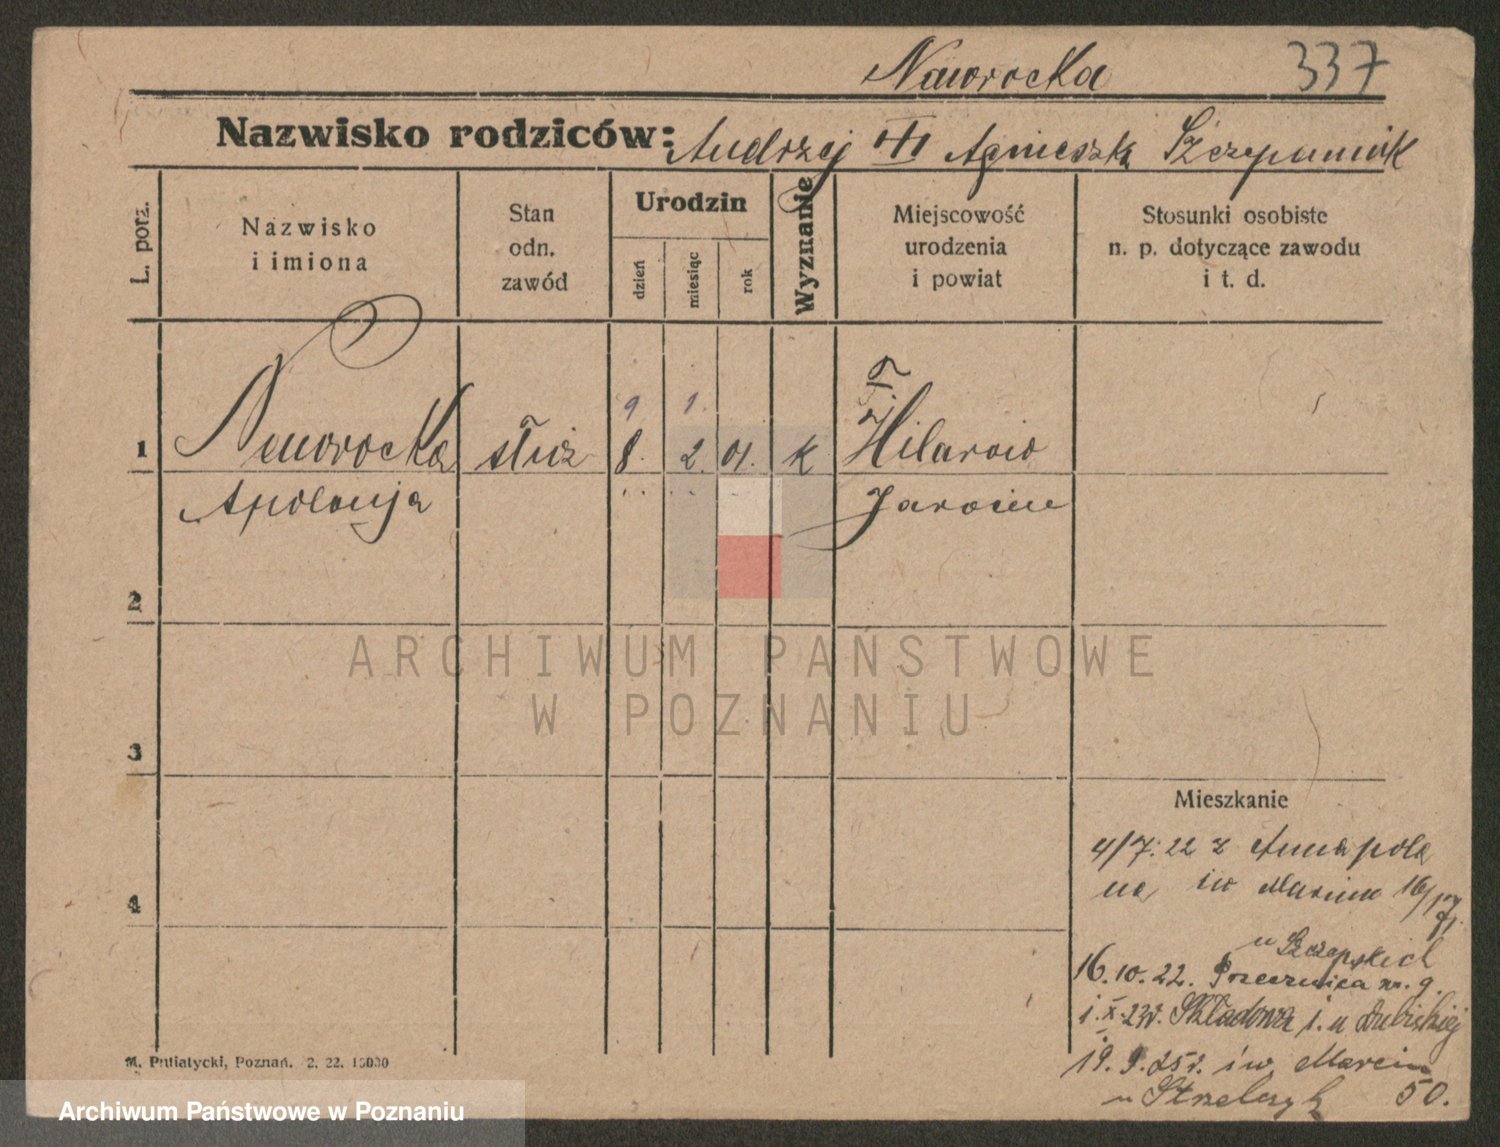 Nawrocka 337
Nazwisko rodziców: Andrzej Agnieszka Szczepaniak
L. porz.
Nazwisko
i imiona
Stan
odn.
zawód
Urodzin
dzień
miesiąc
rok
Wyznanie
Miejscowość
urodzenia
i powiat
Stosunki osobiste
n. p. dotyczące zawodu
i t. d.
9 1.
1 Nawrocka służ 8. 2. 01. k Hilarow
Apolonja Jarocin
2
ARCHIWUM PAŃSTWOWE
W POZNANIU
3
Mieszkanie
4/7. 22 z Annapola
na św Marcin 16/17
4
u Szczepskich
16.10.22. Pszczelnica nr. 9.
1.X.23r. Składowa 1. u Dubiskiej
19. 9. 25r. św. Marcin
u Strzelczyk 50.
M. Putiatycki, Poznań. 2. 22. 15000
Archiwum Państwowe w Poznaniu